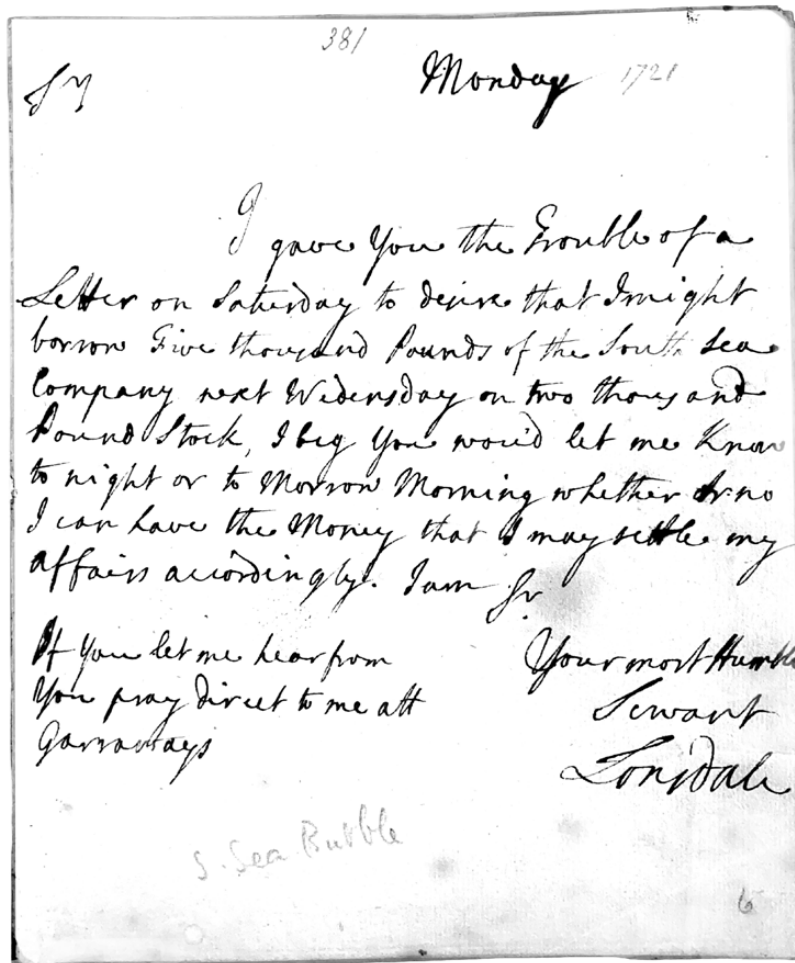 381
Monday 1721
Sr
I gave You the Trouble of a
Letter on Saturday to desire that I might
borrow Five thousand Pounds of the South Sea
Company next Wedensday on two thousand
Pound Stock, I beg You wou'd let me Know
to night or to Morrow Morning whether Or no
I can have the Money that I may settle my
affairs accordingly. I am Sr
If You let me hear from
You pray direct to me att
Garraways
Your most Humble
Servant
Lonsdale
S. Sea Bubble
6